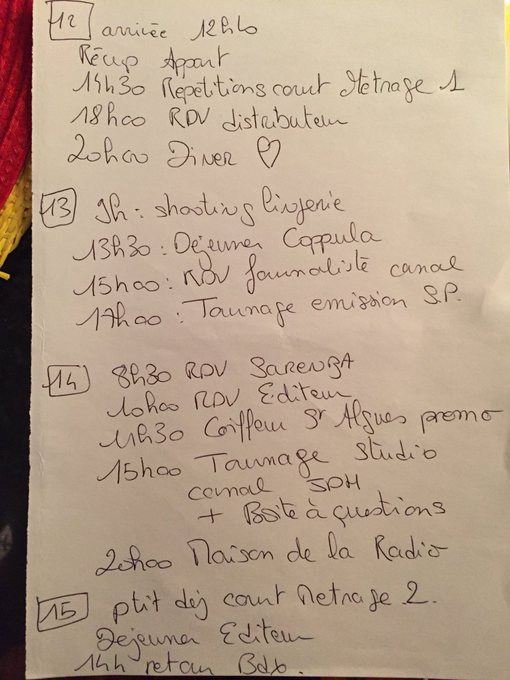 12 arrivée 12h40
Récup Appart
14h30 Répétitions court Métrage 1
18h00 RDV distributeur
20h00 Diner ♡
13 9h : shooting lingerie
13h30 : Déjeuner Coppula
15h00 : RDV journaliste canal
17h00 : Tournage emission S.P.
14 8h30 RDV SARENZA
10h00 RDV Editeur
11h30 Coiffeur St Algues promo
15h00 Tournage Studio
canal JDH
+ Boite à questions
20h00 Maison de la Radio
15 ptit déj court Metrage 2.
Déjeuner Editeur
14h retour Bdx.